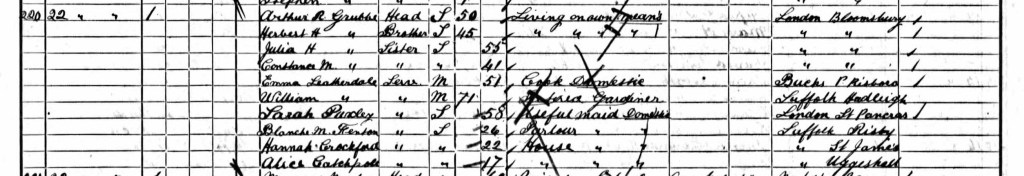 Stephen "
220 22 " " 1 Arthur R Grubbe Head S 50 Living on own means London Bloomsbury 1
Herbert H " Brother S 45 " " " " " " 1
Julia H " Sister S 55 " " 1
Constance M. " " " 41 " " 1
Emma Leatherdale Serv M 51 Cook Domestic Bucks P. Risboro 1
William " " M 71 Retired Gardiner Suffolk Hadleigh
Sarah Puxley " S 58 Useful maid Domestic London St Pancras 1
Blanche M. Stenson " S 26 Parlour " " Suffolk Risby
Hannah Crockford " " 22 House " " " St James
Alice Catchpole " " 17 " " " "
221 22 " " 1 Head